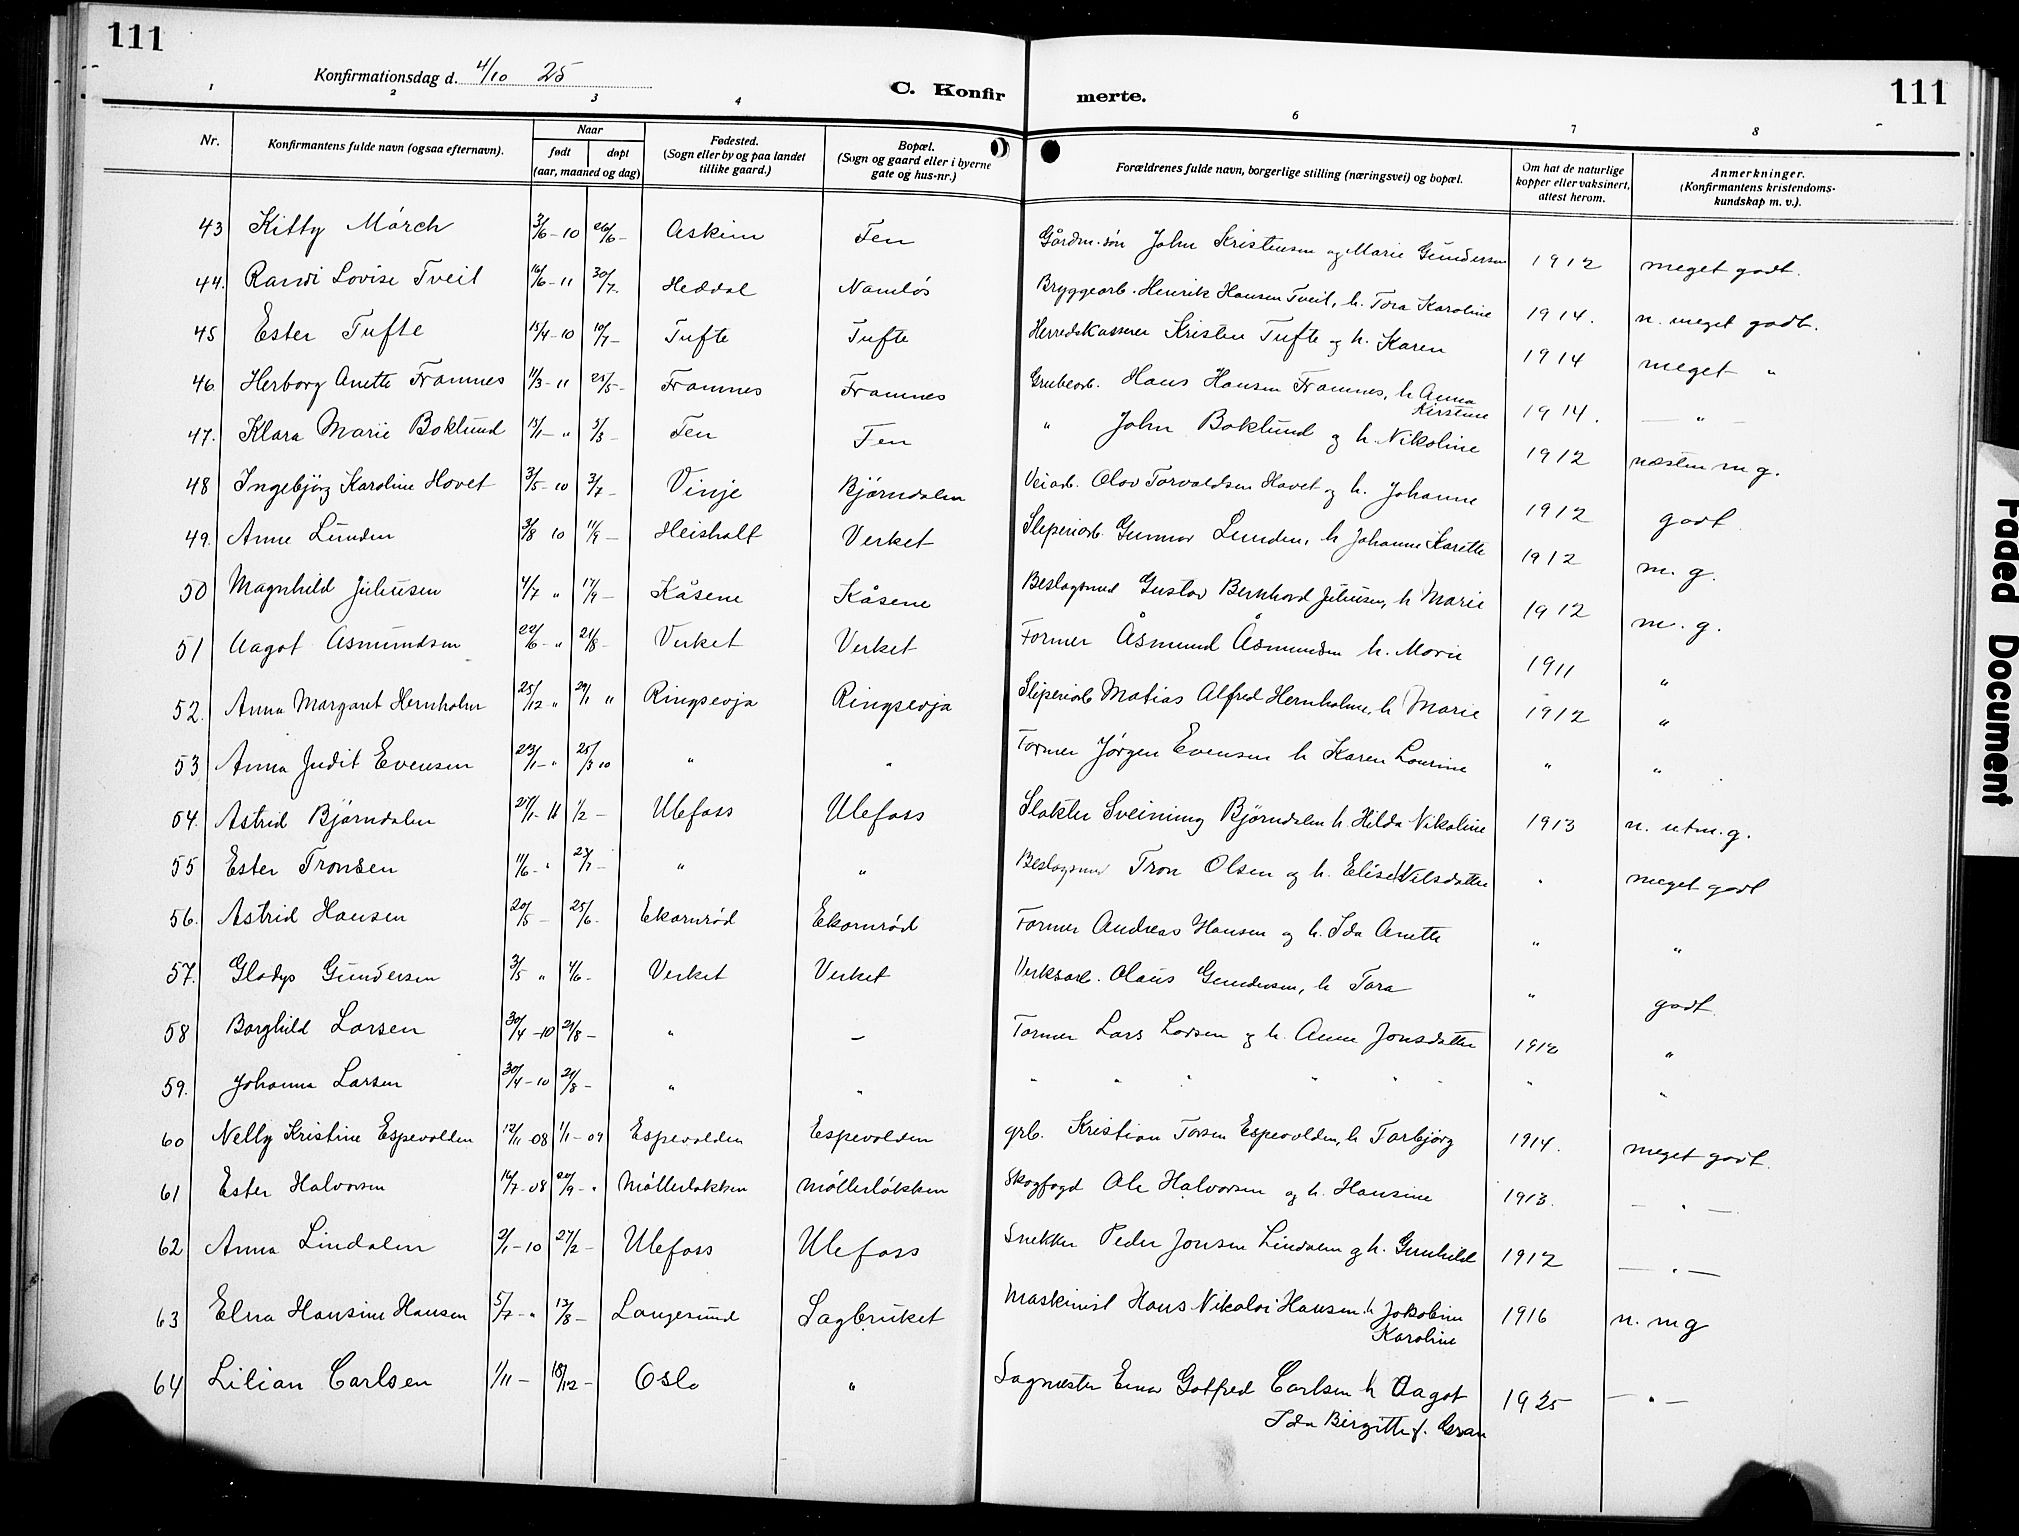 111
Konfirmationsdag d. 4/10 25
C. Konfirmerte.
111
1 2 3 4 5 6 7 8
Nr. Konfirmantens fulde navn (ogsaa efternavn). Naar født døpt (aar, maaned og dag) Fødested. (Sogn eller by og paa landet tillike gaard.) Bopæl. (Sogn og gaard eller i byerne gate og hus-nr.) Forældrenes fulde navn, borgerlige stilling (næringsvei) og bopæl. Om hat de naturlige kopper eller vaksinert, attest herom. Anmerkninger. (Konfirmantens kristendoms-kundskap m. v.).
43 Kitty Mörch 3/6-10 26/6- Askim Fen Gårdm.søn John Kristensen og Marie Gundersen 1912 meget godt.
44. Randi Lovise Tveit 16/6-11 30/7. Heddal Namløs Bryggearb. Henrik Hansen Tveit, h. Tora Karoline 1914. n. meget godt.
45 Ester Tufte 15/4-10 10/7- Tufte Tufte Herredskasserer Kristen Tufte og h. Karen 1914 meget "
46 Herborg Anette Framnes 11/3-11 25/5- Framnes Framnes Grubearb. Hans Hansen Framnes, h Anna Kirstine 1914. - " -
47. Klara Marie Boklund 15/1- " 5/3- Fen Fen " John Boklund og h. Nikoline 1912 næsten m g.
48 Ingebjørg Karoline Hovet 3/5-10 3/7- Vinje Bjørndalen Veiarb. Olav Torvaldsen Hovet og h. Johanne 1912 godt.
49. Anne Lunden 3/8 10 11/9- Heisholt Verket Sliperiarb. Gunnar Lunden, h Johanne Karette 1912 m. g.
50 Magnhild Juliusen 4/7 " 17/9- Kåsene Kåsene Beslagsmed Gustav Bernhard Juliusen, h Marie 1912 m. g.
51 Aagot Asmundsen 22/6- " 21/8- Verket Verket Former Åsmund Åsmundsen h. Marie 1911 "
52. Anna Margaret Hernholm 25/12 " 29/1 " Ringsevja Ringsevja Sliperiarb Matias Alfred Hernholm, h Marie 1912 "
53 Anna Judit Evensen 23/1- " 25/3 10 " " Former Jørgen Evensen h Karen Lourine " "
54. Astrid Bjørndalen 27/1-11 1/2- Ulefoss Ulefoss Slakter Sveinung Bjørndalen h. Hilda Nikoline 1913 n. utm. g.
55 Ester Tronsen 11/6- " 23/7- " " Beslagsmed Tron Olsen og h. Elise Nilsdatter " meget godt
56. Astrid Hansen 20/5- 25/6- Ekornrød Ekornrød Former Andreas Hansen og h. Ida Anette " "
57. Gladys Gundersen 3/5 " 4/6- Verket Verket Verksarb. Olaus Gundersen, h Tora " godt.
58 Borghild Larsen 30/4-10 21/8- " - Former Lars Larsen og h. Anne Jonsdatter 1912 "
59. Johanna Larsen 30/4-10 21/8- " " " " " " " " " "
60 Nelly Kristine Espevalden 12/11-08 1/1-09 Espevolden Espevolden grb. Kristian Torsen Espevolden, h Torbjørg 1914. meget godt.
61 Ester Halvorsen 16/7-08 20/9- " Møllerløkken Møllerløkken Skogfogd Ole Halvorsen og h. Hansine 1913. - " -
62 Anna Lindalen 2/1-10 27/2- Ulefoss Ulefoss Snekker Peder Jonsen Lindalen og h. Gunhild 1912 - " -
63 Elna Hansine Hansen 5/7- " 13/8- Langesund Sagbruket Maskinist Hans Nikolai Hansen h Jakobine Karoline 1916 n. m g
64 Lilian Carlsen 1/11- 18/12- Oslo " Sagmester Einar Gotfred Carlsen h Aagot Ida Birgitte f. Gran 1925 - " -
Faded Document